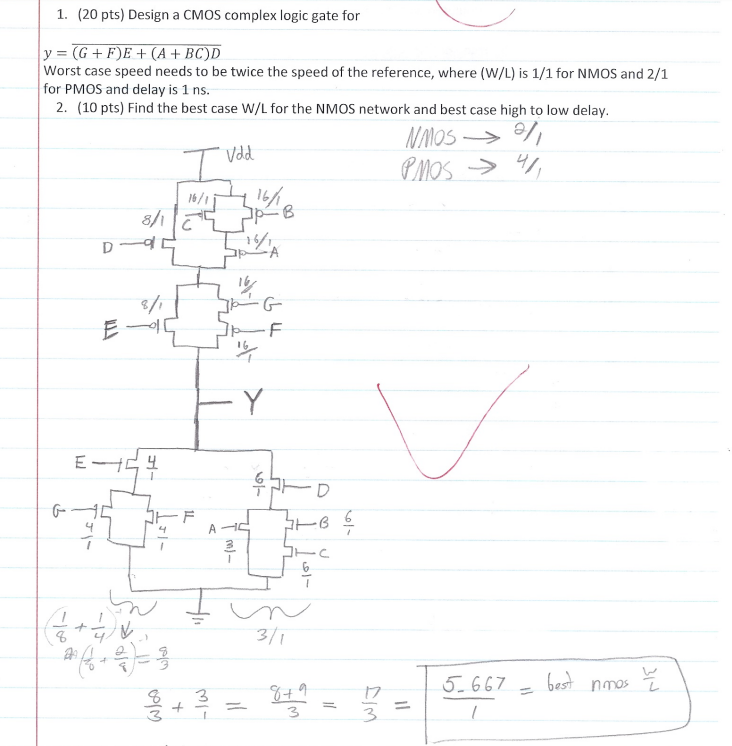 1. (20 pts) Design a CMOS complex logic gate for
y = \overline{(G + F)E + (A + BC)D}
Worst case speed needs to be twice the speed of the reference, where (W/L) is 1/1 for NMOS and 2/1
for PMOS and delay is 1 ns.
2. (10 pts) Find the best case W/L for the NMOS network and best case high to low delay.
NMOS → 2/1
PMOS → 4/1
Vdd
16/1 16/1
8/1 C B
D 16/1 A
16/1
8/1 G
E F
16/1
Y
E 4/1
6/1 D
G F A B 6/1
4/1 4/1 3/1 C
6/1
(1/8 + 1/4)
3/1
(1/8 + 2/8) = 8/3
8/3 + 3/1 = 8+9/3 = 17/3 = 5.667/1 = best nmos W/L